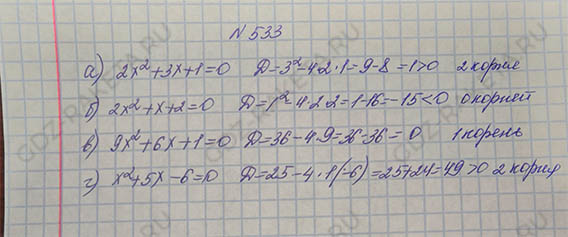 N 533
а) 2x²+3x+1=0 D=3²-4·2·1=9-8=1>0 2 корня
б) 2x²+x+2=0 D=1²-4·2·2=1-16=-15<0 0 корней
в) 9x²+6x+1=0 D=36-4·9=36-36=0 1 корень
г) x²+5x-6=0 D=25-4·1(-6)=25+24=49>0 2 корня